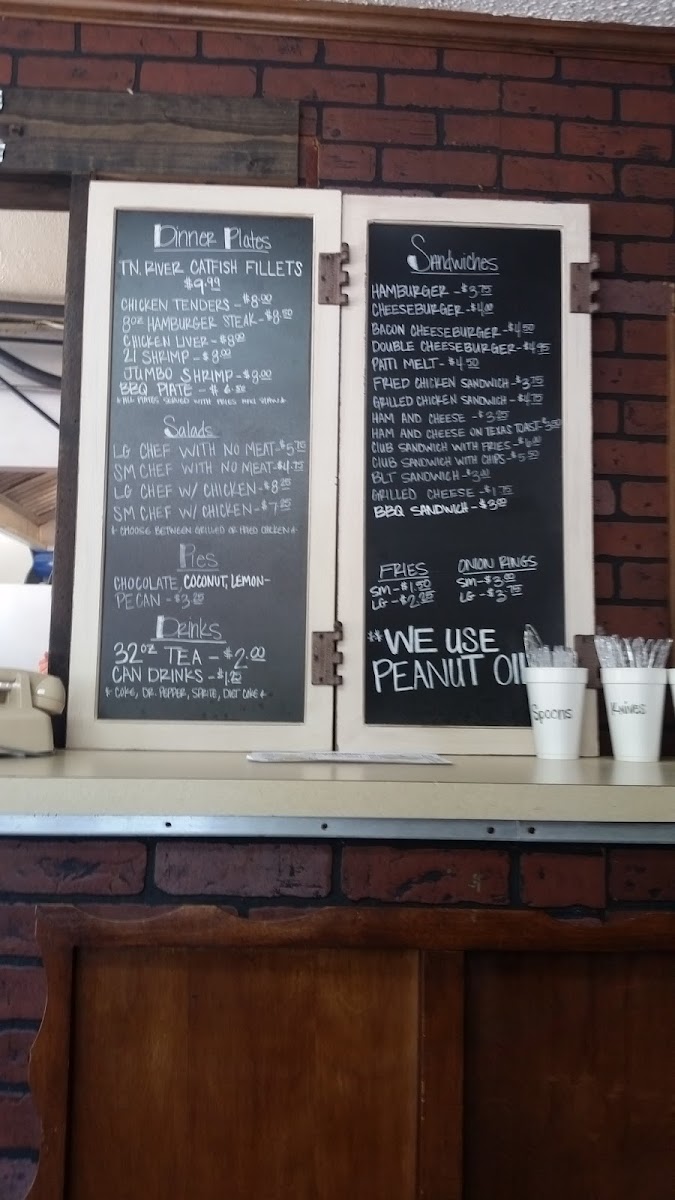 Dinner Plates
TN. RIVER CATFISH FILLETS
$9.99
CHICKEN TENDERS - $8.00
8oz HAMBURGER STEAK - $8.50
CHICKEN LIVER - $8.00
21 SHRIMP - $8.00
JUMBO SHRIMP - $8.00
BBQ PLATE - $6.50
* ALL PLATES SERVED WITH FRIES AND SLAW *
Salads
LG CHEF WITH NO MEAT - $5.75
SM CHEF WITH NO MEAT - $4.75
LG CHEF W/ CHICKEN - $8.25
SM CHEF W/ CHICKEN - $7.25
* CHOOSE BETWEEN GRILLED OR FRIED CHICKEN *
Pies
CHOCOLATE, COCONUT, LEMON-
PECAN - $3.25
Drinks
32oz TEA - $2.00
CAN DRINKS - $1.25
* COKE, DR. PEPPER, SPRITE, DIET COKE *
Sandwiches
HAMBURGER - $3.75
CHEESEBURGER - $4.00
BACON CHEESEBURGER - $4.50
DOUBLE CHEESEBURGER - $4.95
PATTI MELT - $4.50
FRIED CHICKEN SANDWICH - $3.75
GRILLED CHICKEN SANDWICH - $4.75
HAM AND CHEESE - $3.25
HAM AND CHEESE ON TEXAS TOAST - $3.50
CLUB SANDWICH WITH FRIES - $6.00
CLUB SANDWICH WITH CHIPS - $5.50
BLT SANDWICH - $3.00
GRILLED CHEESE - $1.75
BBQ SANDWICH - $3.00
FRIES
SM - $1.50
LG - $2.25
ONION RINGS
SM - $3.00
LG - $3.75
** WE USE
PEANUT OIL
Spoons
Knives